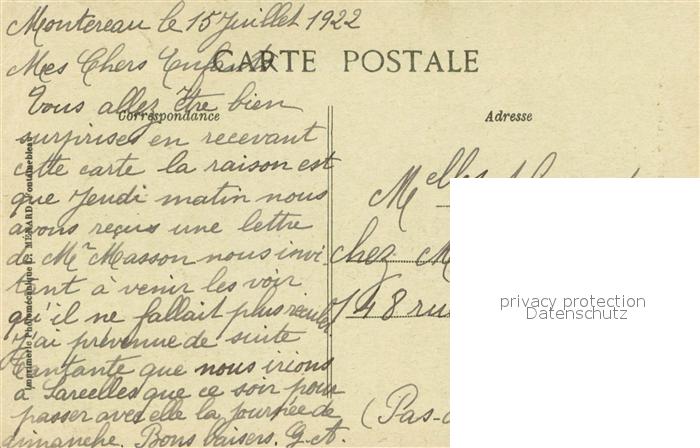 Montereau le 15 Juillet 1922
Mes Chers Enfants
CARTE POSTALE
Vous allez être bien
Correspondance
surprises en recevant
cette carte la raison est
que Jeudi matin nous
avons reçus une lettre
de Mr Masson nous invi-
tant à venir les voir
qu'il ne fallait plus reculer
J'ai prévenue de suite
Tantante que nous irions
à Sarcelles que ce soir pour
passer avec elle la journée de
dimanche. Bons baisers. G. A.
Imprimerie Photomécanique L. MÉNARD Fontainebleau
Adresse
Melles
chez M
148 rue
(Pas-d
privacy protection
Datenschutz